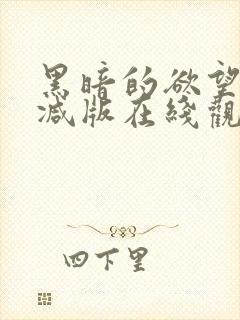 黑暗的欲望
减版在綫觀
四下里